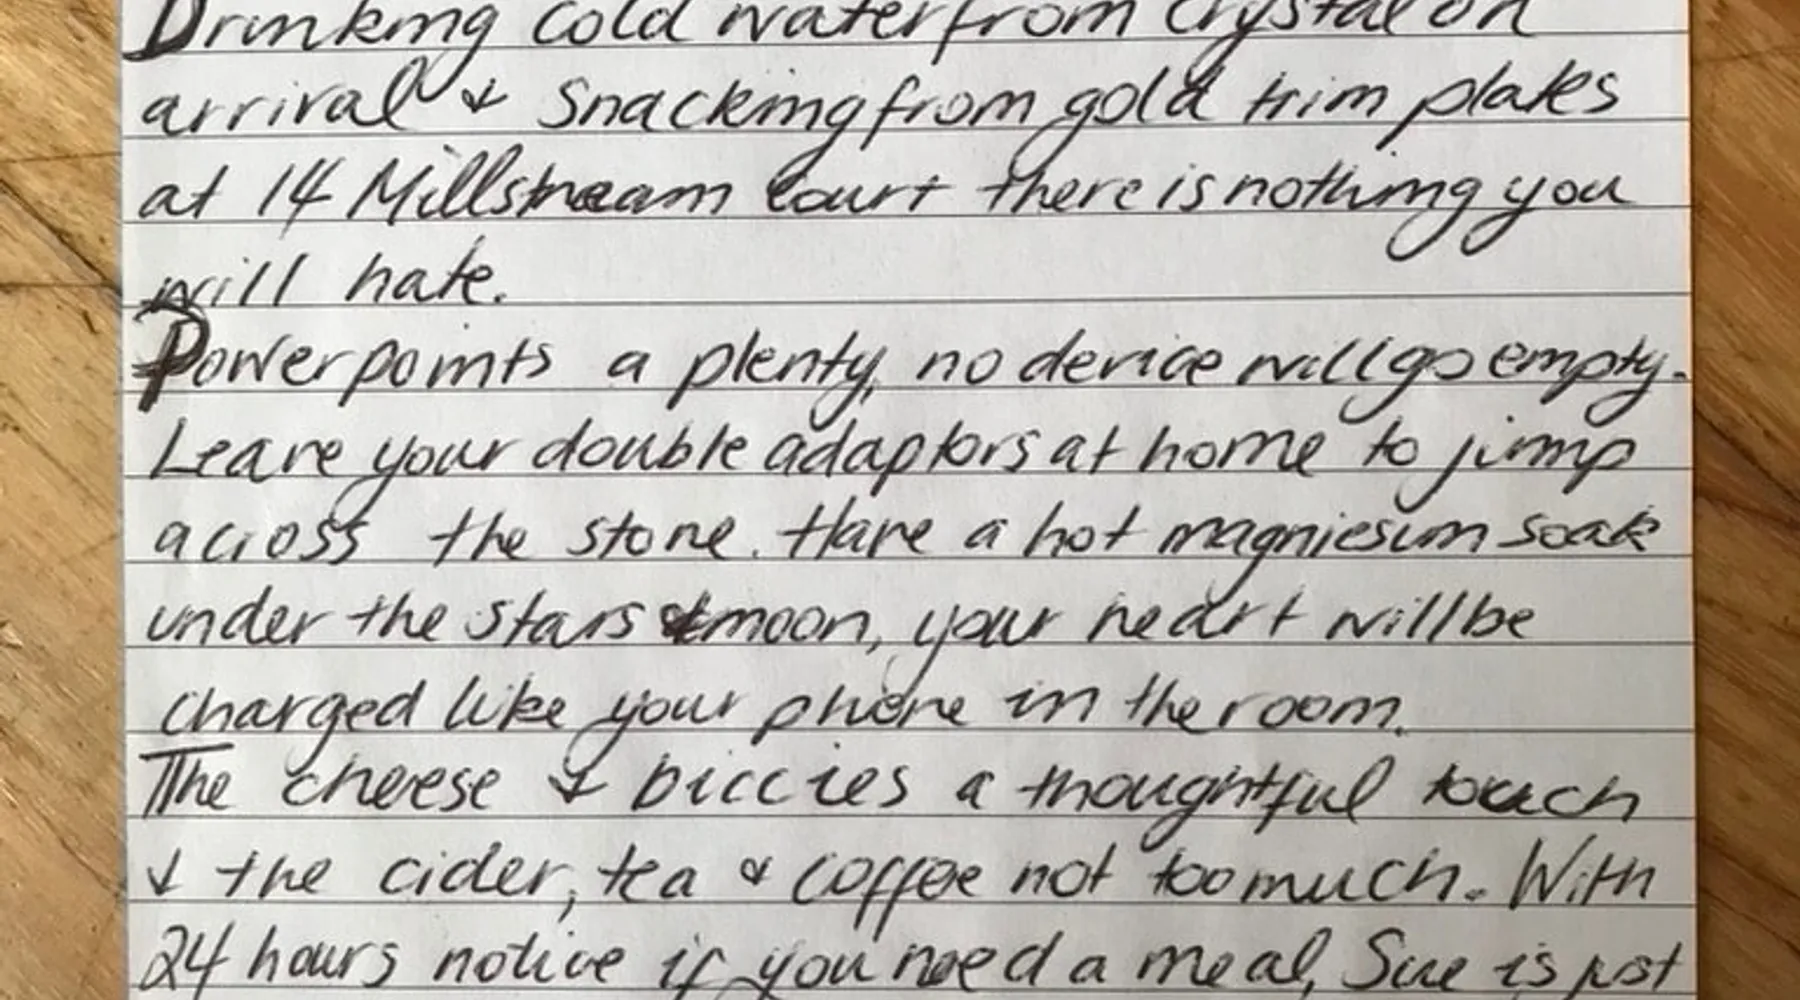 Drinking cold water from crystal on
arrival & snacking from gold trim plates
at 14 Millstream Court there is nothing you
will hate.
Powerpoints a plenty, no device will go empty.
Leave your double adaptors at home to jump
across the stone. Have a hot magniesium soak
under the stars & moon, your heart will be
charged like your phone in the room.
The cheese & biccies a thoughtful touch
& the cider, tea & coffee not too much. With
24 hours notice if you need a meal, Sue is just